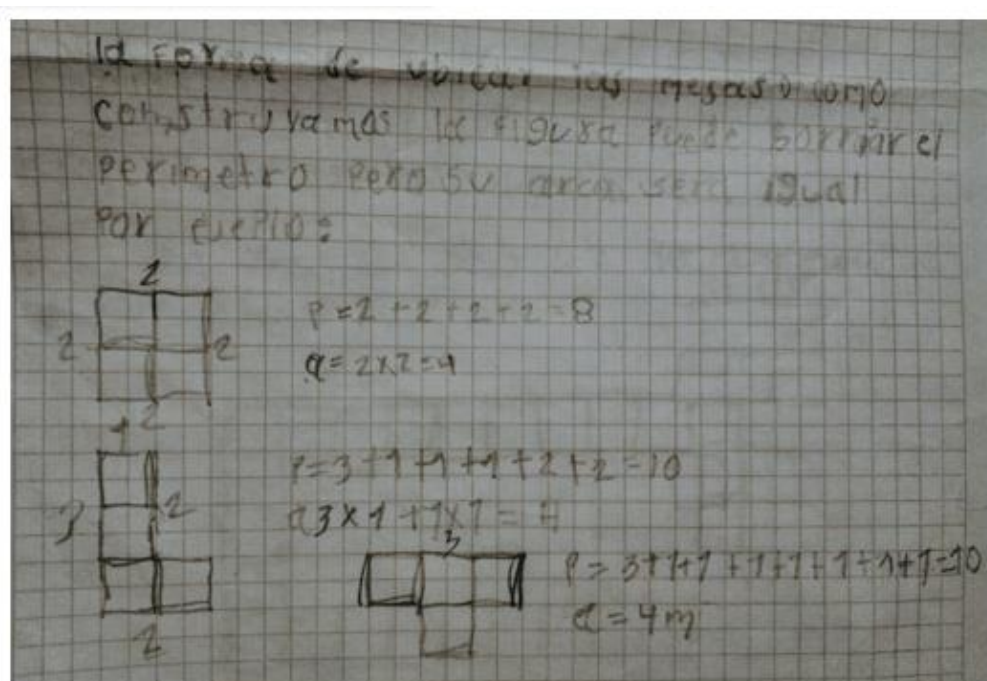 la forma de ubicar las mesas o como
construyamos la figura puede
perimetro pero su area sera igual
por
2
P=2+2+2+2=8
2 2
a=2x2=4
2
1
P=3+1+1+1+2+2=10
3 2
a3x1+1x1=4
3
P=3+1+1+1+1+1+1+1=10
a=4m
2